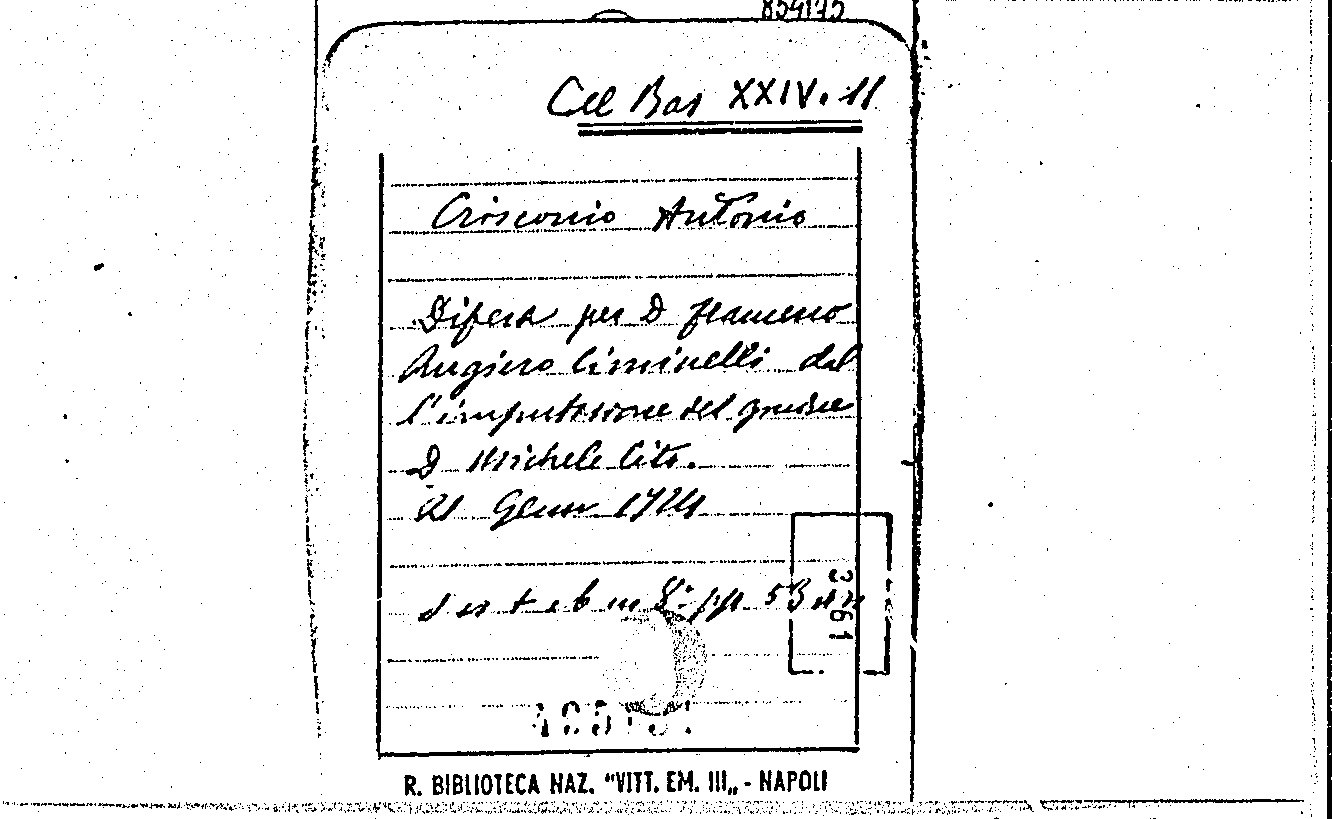 854175
Col Bas XXIV. 11
Crisconio Antonio
Difesa per D
Rugiero Ciminelli dal
l'imputazione del giudice
D Michele Cito.
21 Genn 1724
s es t e b in 8° pp. 53 nn
R. BIBLIOTECA NAZ. "VITT. EM. III„ - NAPOLI